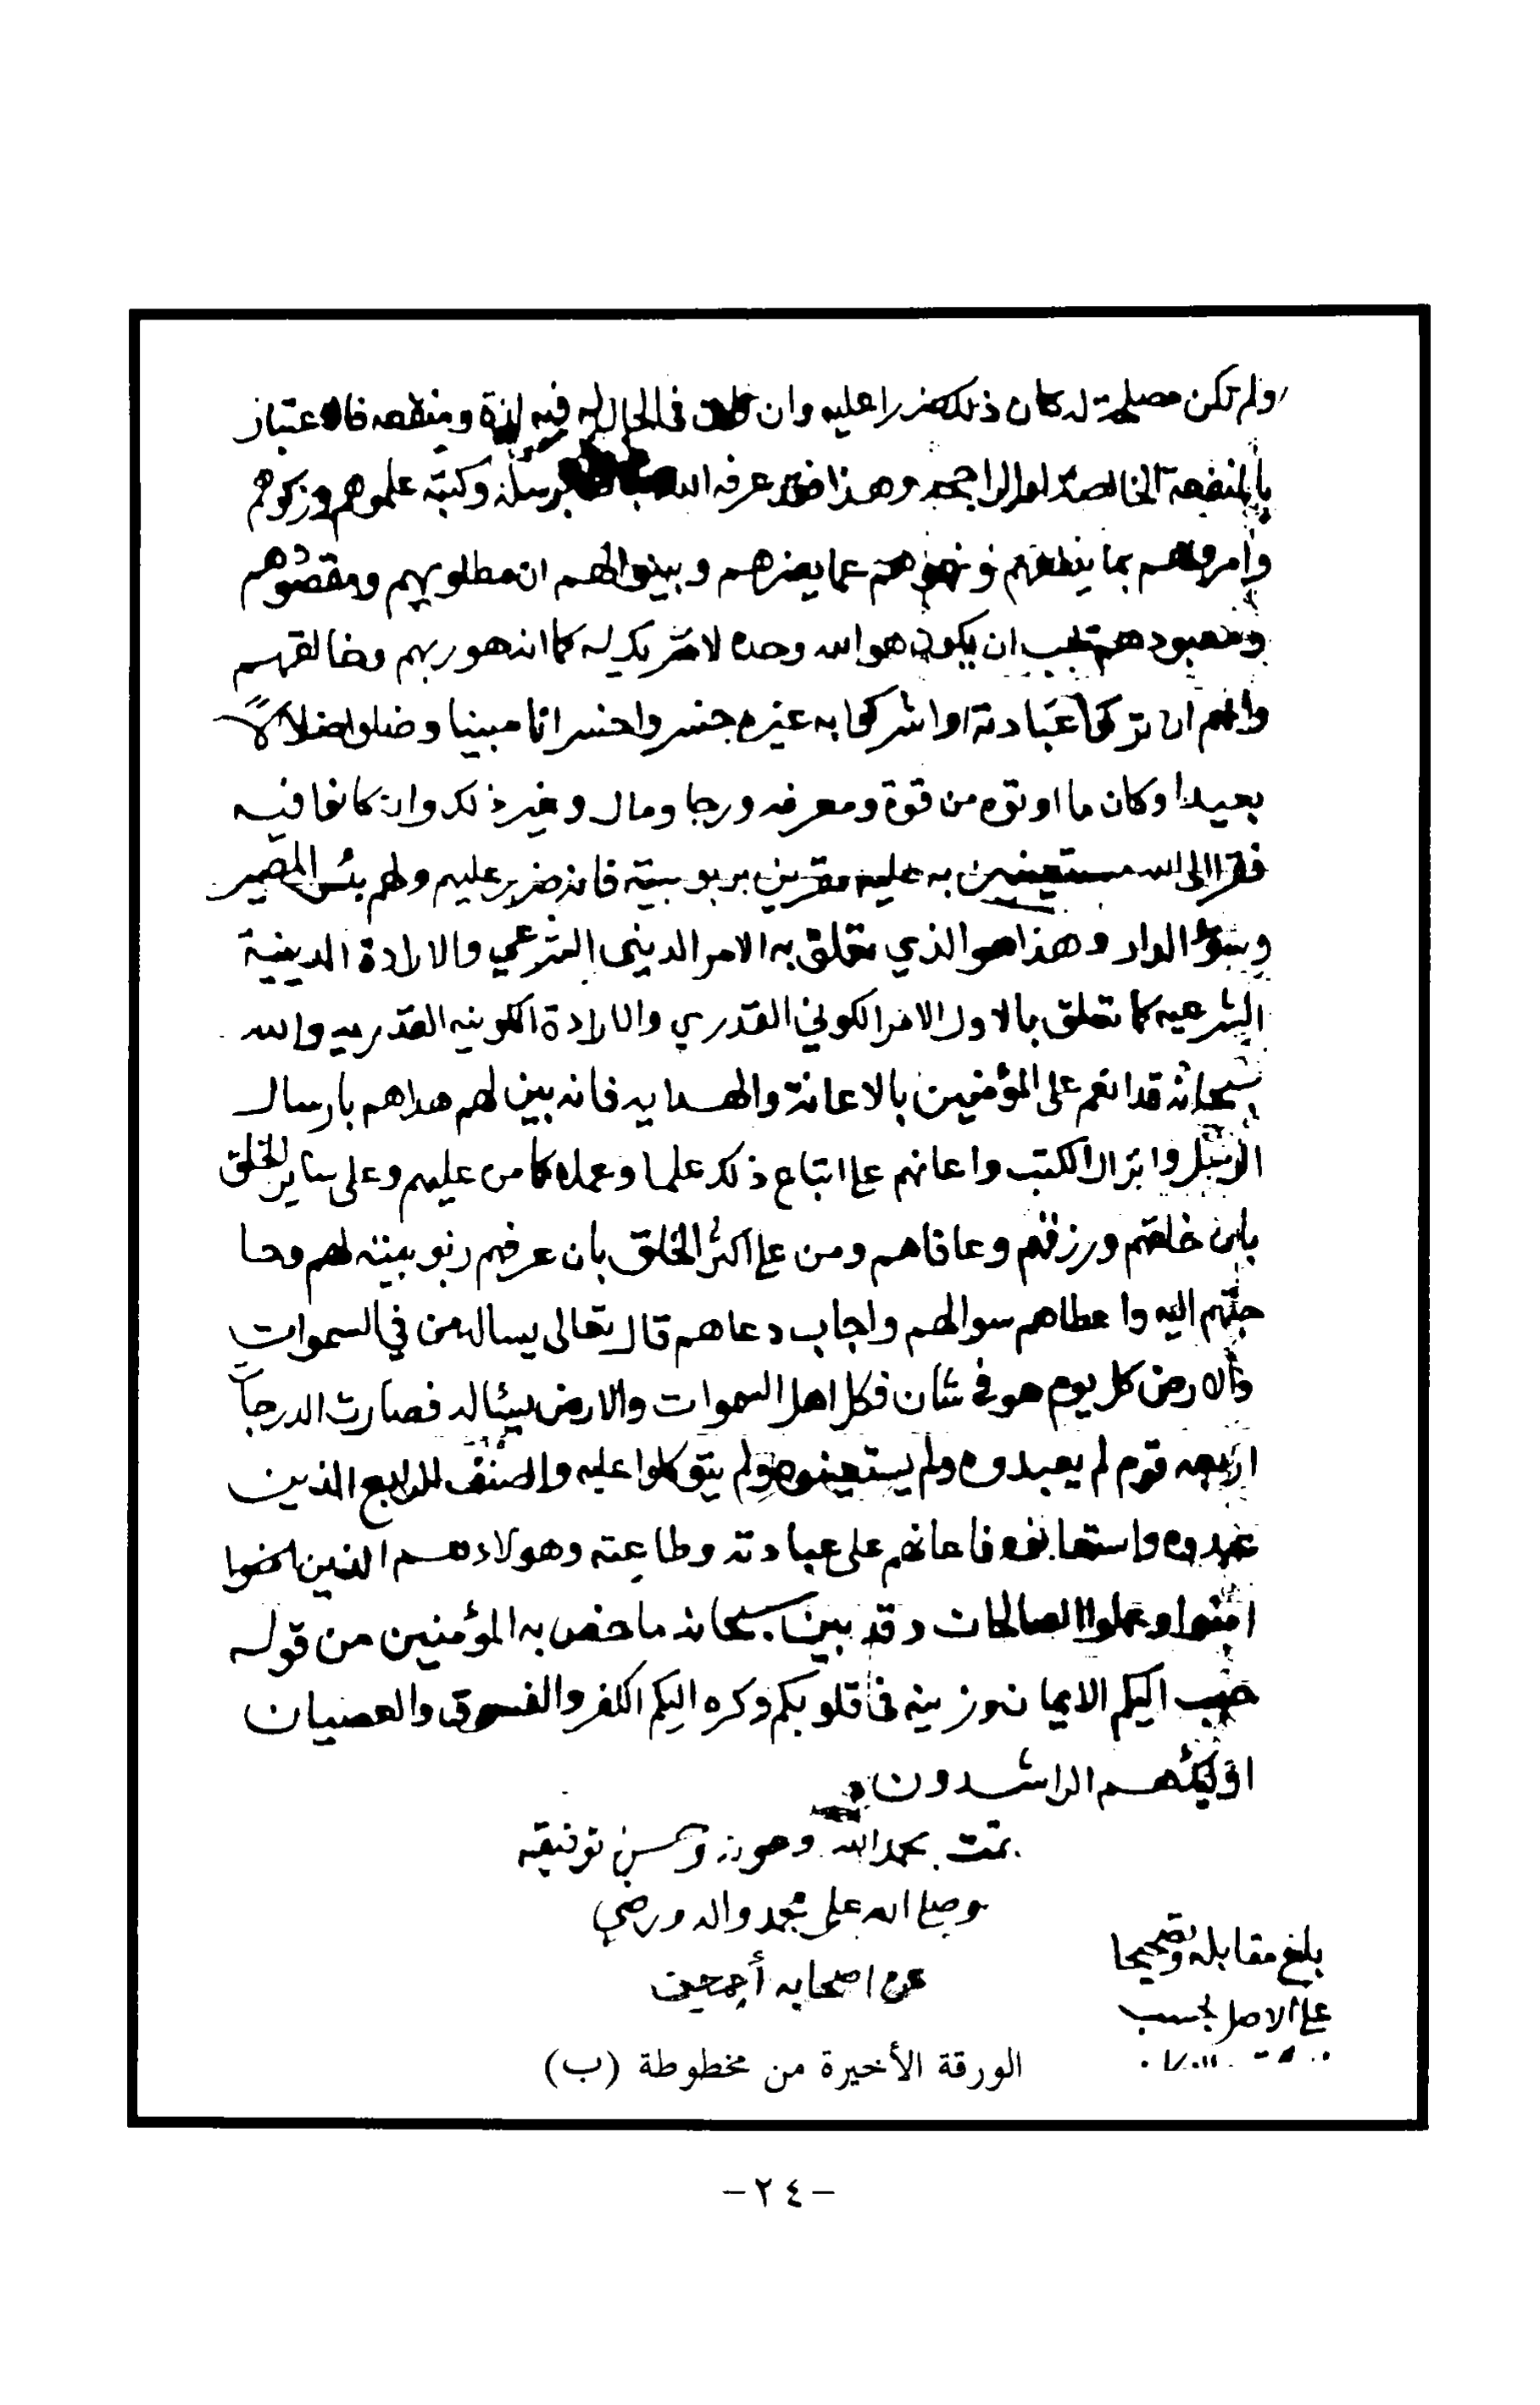 ولم تكن مصلحة له كان ذلك ضررا عليه وان كانت في الحال له فيه لذة ومنفعه فالاعتبار
بالمنفعة الخالصة او الراجحه وهذا قد عرفه الله برسله وكتبه علموهم وزكوهم
وامروهم بما ينفعهم ونهوهم عما يضرهم وبينوا لهم ان مطلوبهم ومقصودهم
ومعبودهم يجب ان يكون هو الله وحده لا شريك له كما انه هو ربهم وخالقهم
وانهم ان تركوا عبادته او اشركوا به غيره خسروا خسرانا مبينا وضلوا ضلالا
بعيدا وكان ما اوتوه من قوة ومعرفه وجا ومال وغير ذلك وان كانوا فيه
فقرا الى الله مستعينين به عليه مقرين بربوبيته فانه ضرر عليهم ولهم بئس المصير
وسؤ الدار وهذا هو الذي تعلق به الامر الديني الشرعي والارادة الدينية
الشرعيه كما تعلق بالاول الامر الكوني القدري والارادة الكونيه القدريه والله
سبحانه قد انعم على المؤمنين بالاعانة والهدايه فانه بين لهم هداهم بارسال
الرسل وانزال الكتب واعانهم على اتباع ذلك علما وعملا كما من عليهم وعلى ساير الخلق
بان خلقهم ورزقهم وعافاهم ومن على اكثر الخلق بان عرفهم ربوبيته لهم وحا
جتهم اليه واعطاهم سوالهم واجاب دعاهم قال تعالى يساله من في السموات
والارض كل يوم هو في شأن فكل اهل السموات والارض يسئاله فصارت الدرجات
اربعه قوم لم يعبدوه ولم يستعينوه ولم يتوكلوا عليه والصنف الرابع الذين
عبدوه واستعانوه فاعانهم على عبادته وطاعته وهولاء هم الذين
امنوا وعملوا الصالحات وقد بين سبحانه ما خص به المؤمنين من قوله
حبب اليكم الايمان وزينه في قلوبكم وكره اليكم الكفر والفسوق والعصيان
اوليك هم الراشدون
تمت بحمد الله وعونه وحسن توفيقه
وصلى الله على محمد واله ورضي
عن اصحابه أجمعين
بلغ مقابله وتصحيحا
على الاصل بحسب
الورقة الأخيرة من مخطوطة (ب)
- ٢٤ -